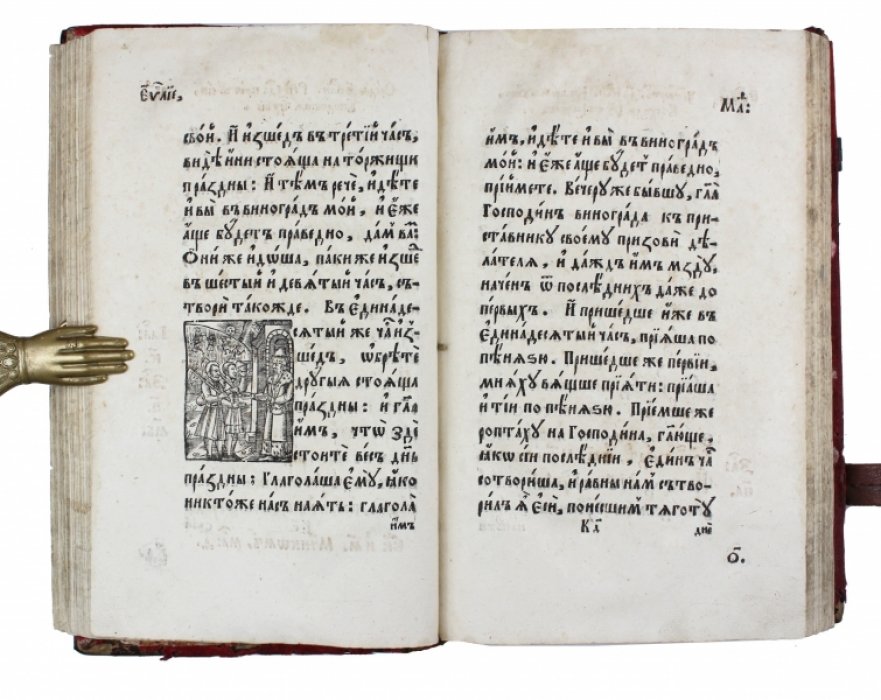 Єѵ҃лїе,
свой. И изшед въ третїй час,
видѣ ини стояща на торжищи
праздны: И тѣм рече, идѣте
и вы въ виноград мой, и єже
аще будет праведно, дам ва:
Они же идоша, паки же изше
въ шестый и девятый час, съ-
твори такожде. Въ єдинаде-
сятый же ча из-
шед, ѡбрѣте
другыя стояща
праздны: и гл҃а
им, что зде
стоите весь дн҃ь
праздны: Глаголаша єму, яко
никтоже нас наят: глагола
имъ
Мат:
имъ, идѣте и вы въ виноград
мой: и єже аще будет праведно,
прїймете. Вечеру же бывшу, гл҃а
Господин винограда къ при-
ставнику своєму призови дѣ-
лателя, и даждъ им мзду,
начен ѿ послѣдних даже до
первых. И пришедше иже въ
єдинадесятый час, прїяша по
пѣнязю. Пришедше же первїи,
мняху вящше прїяти: прїаша
и тїи по пѣнязю. Прїемше же
роптаху на Господина, гл҃юще,
яко сїи послѣднїи, єдин ча
сотвориша, и равны нам сътво-
рил я єси, понесшим тяготу
Ка дне
о҃.